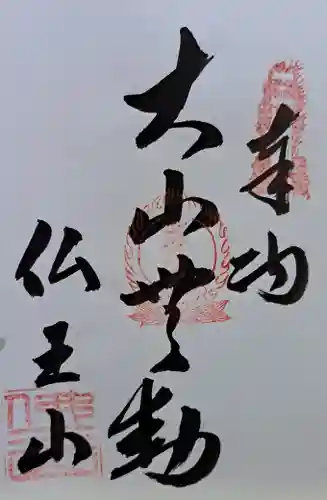 奉拝
大山無動
仏王山